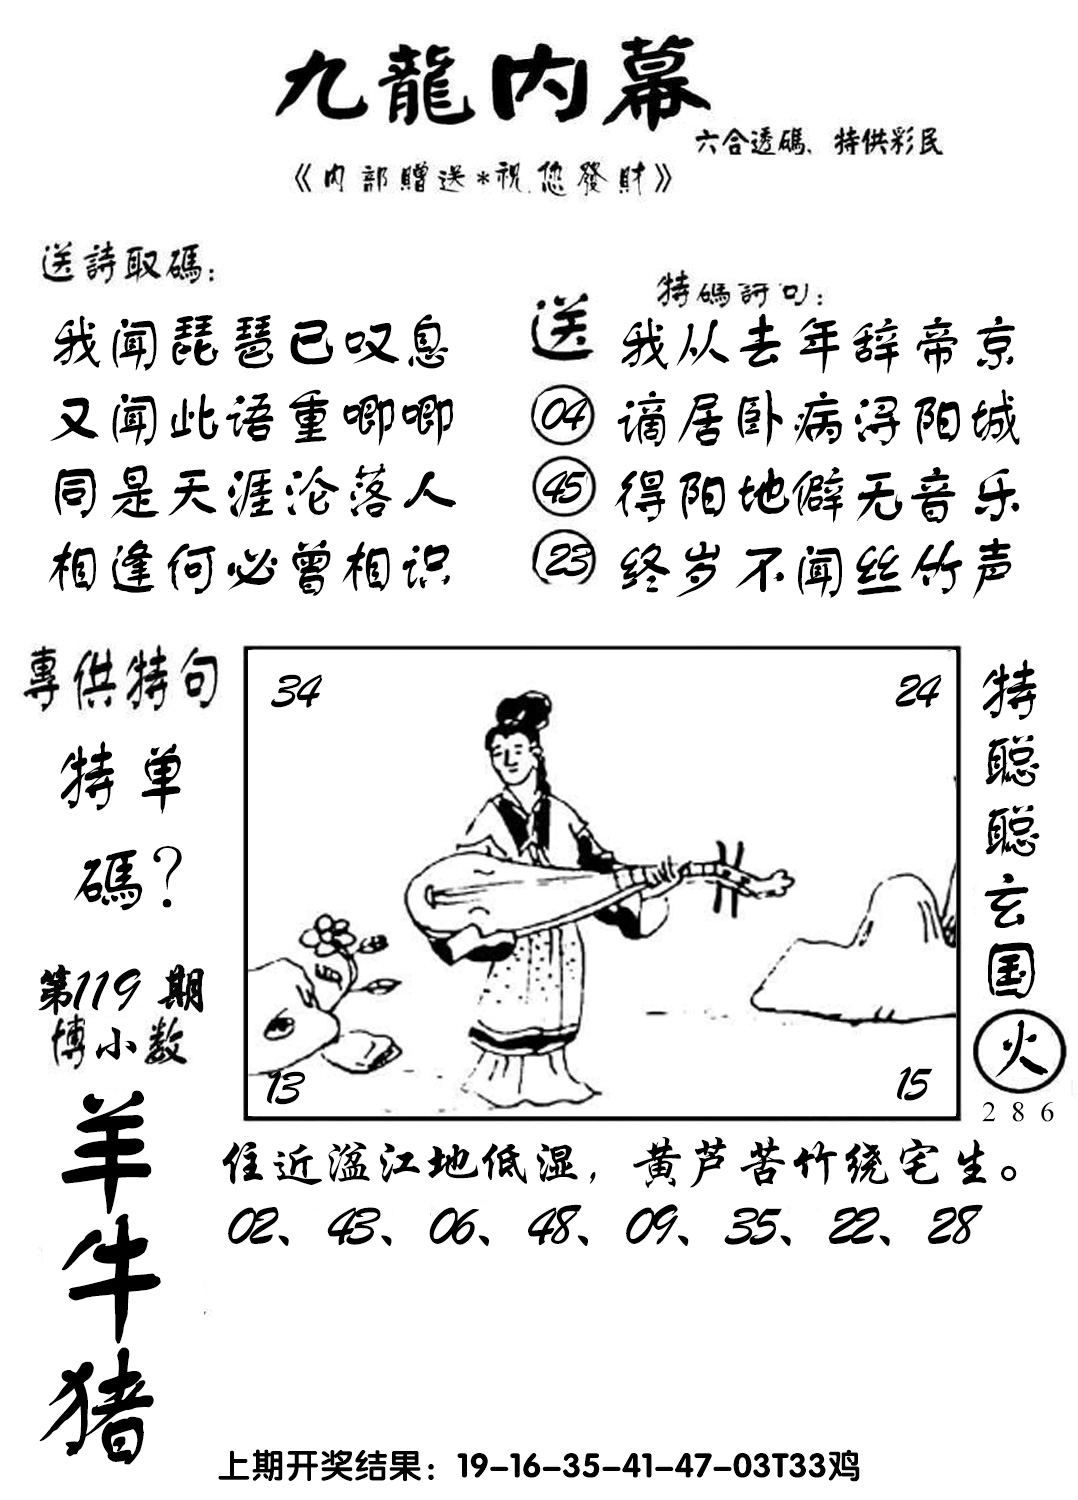 九龍内幕
六合透碼、特供彩民
《内部贈送*祝您發財》
送詩取碼：
我闻琵琶已叹息
又闻此语重唧唧
同是天涯沦落人
相逢何必曾相识
送
04
45
23
特碼詩句：
我从去年辞帝京
谪居卧病浔阳城
得阳地僻无音乐
终岁不闻丝竹声
專供特句
特单
碼？
第119期
博小数
羊
牛
猪
34
24
13
15
特聪聪玄国
火
286
住近湓江地低湿，黄芦苦竹绕宅生。
02、43、06、48、09、35、22、28
上期开奖结果：19-16-35-41-47-03T33鸡